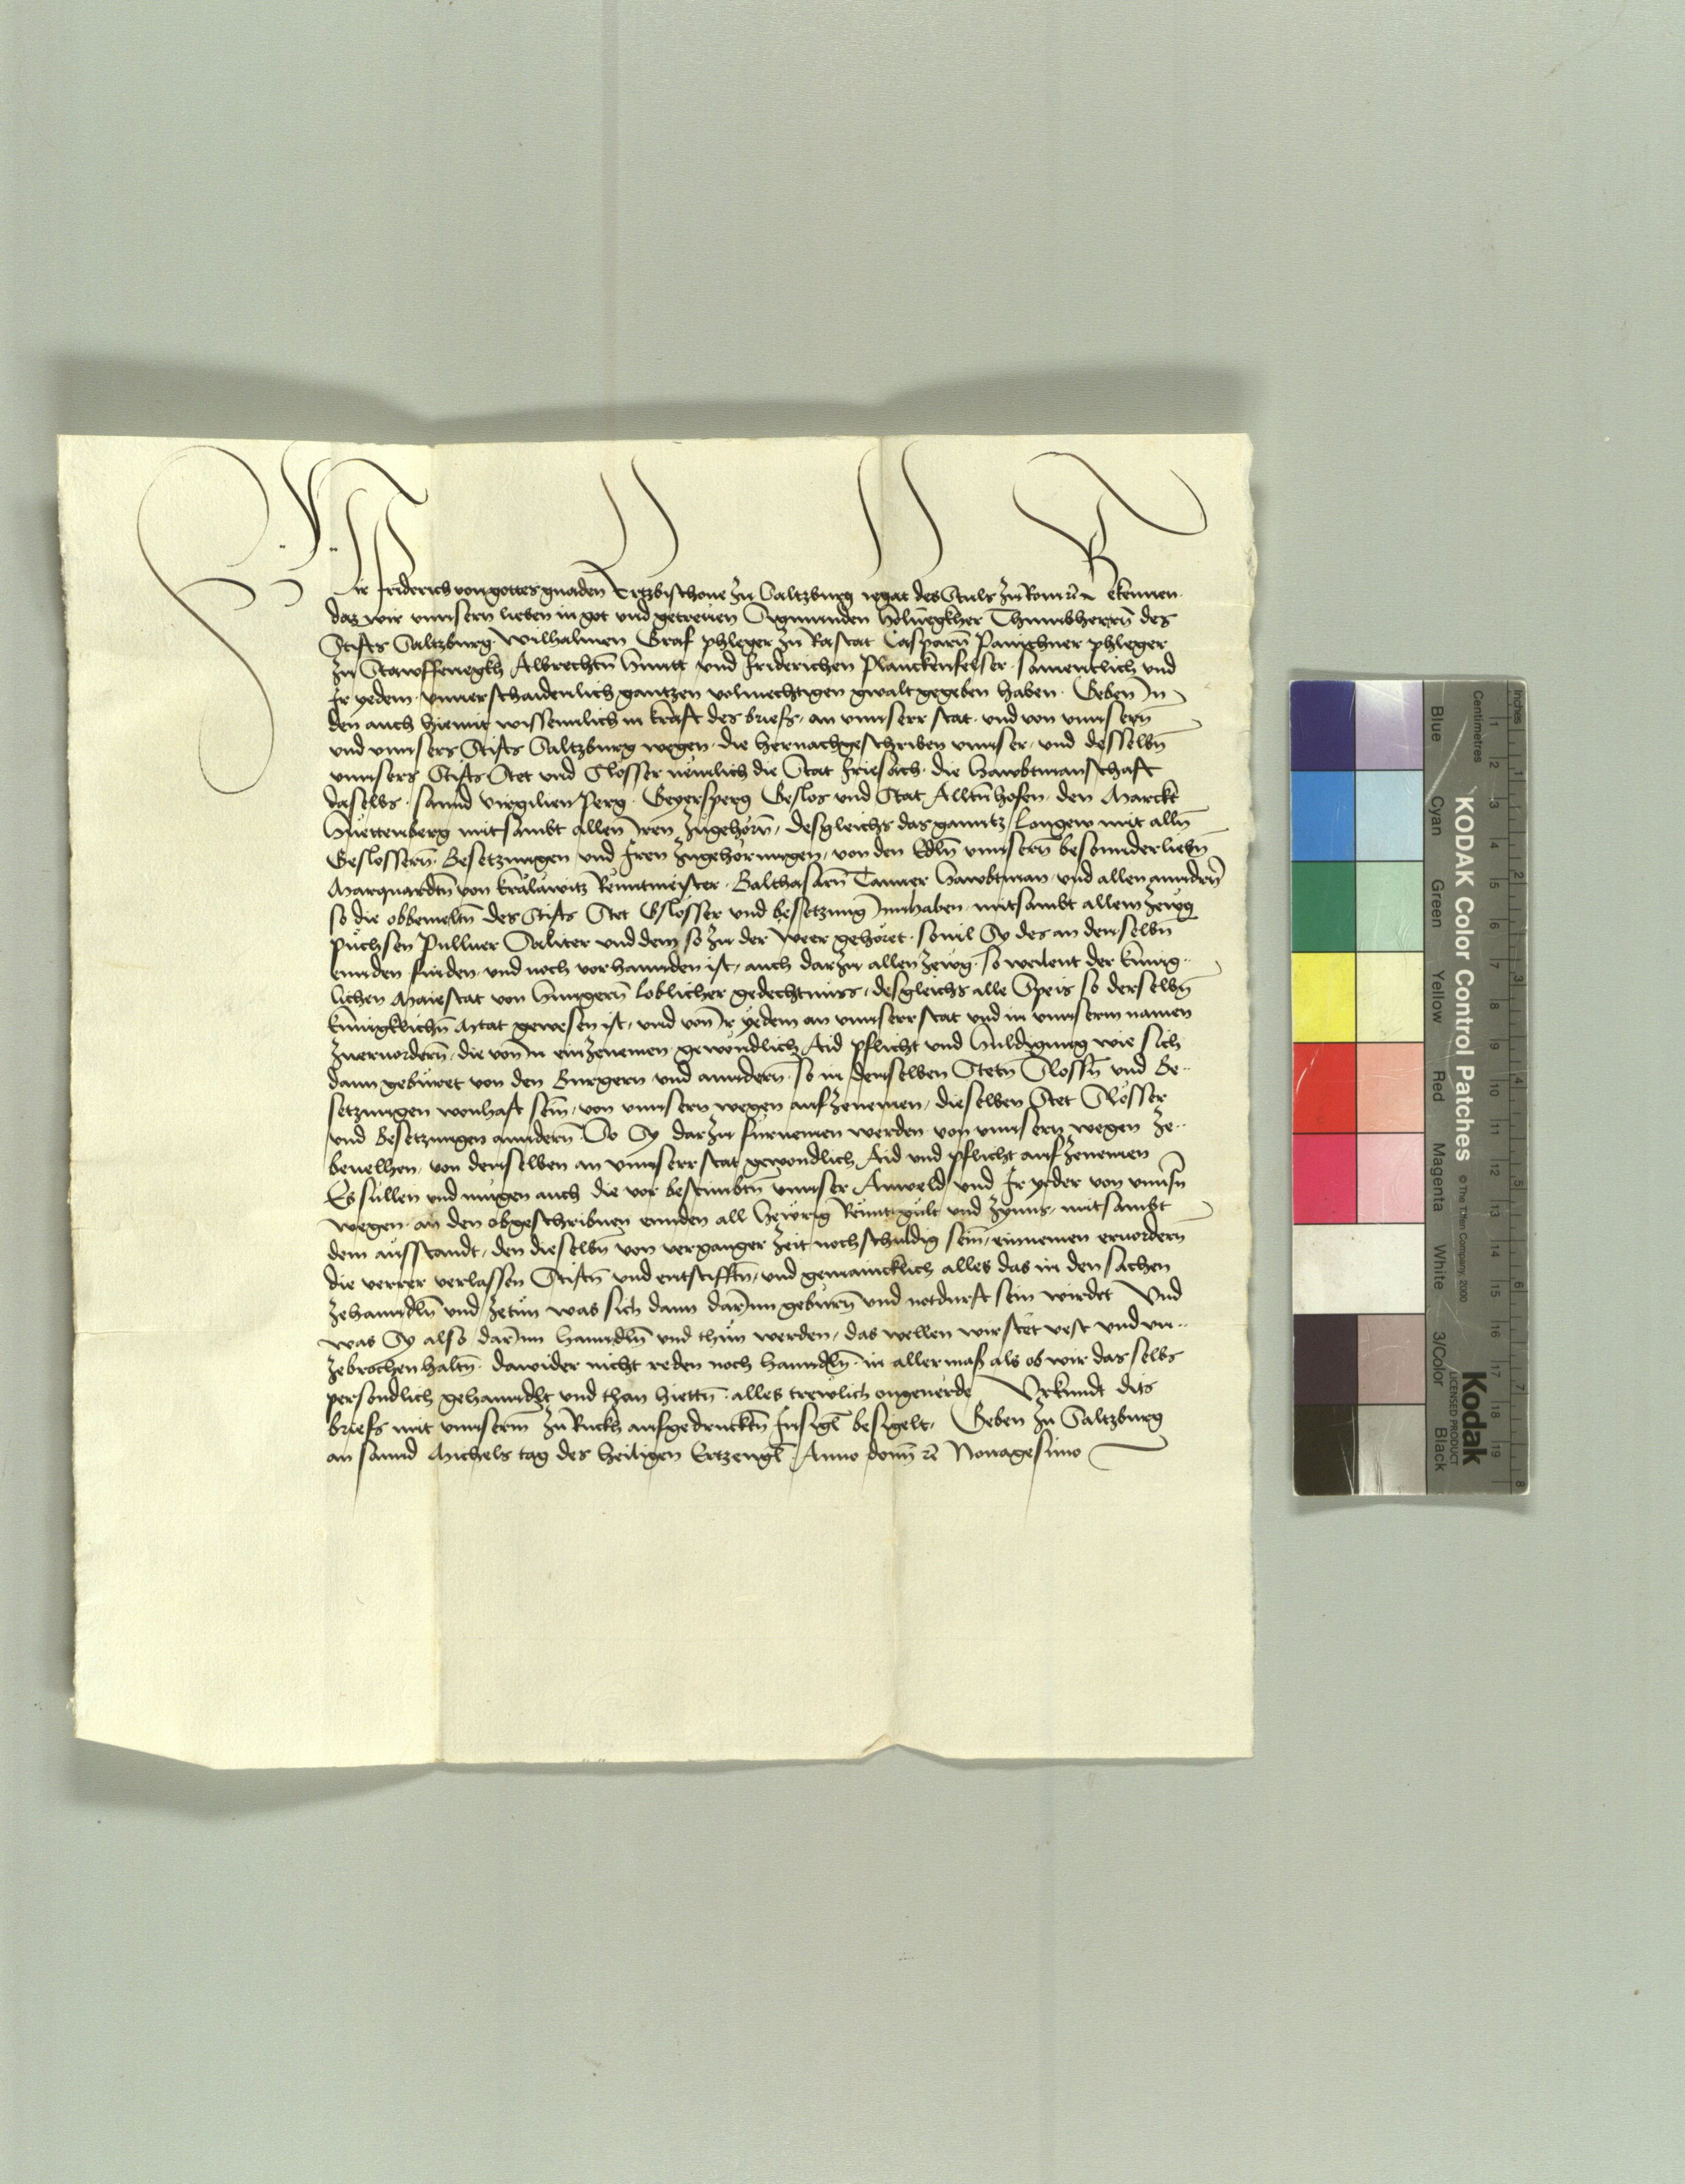 Wir Friderich von gottes gnaden Ertzbischoue zu Saltzburg legat des Stuls zu Rom etc Bekennen
daz wir vnnsern lieben in got und getrewen Sigmunden Holnegkher Thumbherrn des
Stifts Saltzburg Wilhalmen Graf phleger zu Rastat Casparn Panichner phleger
zu Stawffenegkh Albrechtn Hunt und Friderichen Planckenfelser samentlich und
Ir yedem vnuerschaidenlich gantzen volmechtigen gwalt gegeben haben. Geben In
den auch hiemit wissennlich in kraft des briefs, an vnnserr stat und von vnnsern
und vnnsers Stifts Saltzburg wegen die hernachgeschriben vnnser, und desselbn
vnnsers Stifts Stet und Slosser nemlich die Stat Friesach die Hawbtmanschaft
daselbs sannd virgilien perg Geyersperg Geslos und Stat Alltnhofen den Marckt
Huettenberg mitsambt allen Iren zugehorn, desgleichs das ganntz Longew mit alln
Geslossern Besetzungen und Iren zugehorungen, von den Edln vnnsern besonnderliebn
Marquardtn von kralawitz Renntmeister Balthasarn Tanner Hawbtman und allen anndern
so die obbemeltn des Stifts Stet Gslosser und besetzung Innhaben mitsambt allem zewg
puchsen pulluer Saliter und dem so zu der weer gehoret souil Sy des an denselbn
ennden finden und noch vorhannden ist, auch darzu allen zewg so weilent der kunig
lichen Maiestat von Hungern loblicher gedechtnuss, desgleichs alle Speis so derselbn
kunigklichn Mtat gewesen ist, und von Ir yedem an vnnserr stat und in vnnserm namen
zueruordern, die von In einzenemen gewondlich Aid pflicht und Huldigung wie sich
dann geburet von den Burgern und anndern so in denselben Stetn Slossn und Be
setzungen wonhaft sein, von vnnsern wegen aufzenemen, dieselben Stet Slosser
und Besetzungen anndern So Sy darzu furnemen werden von vnnsern wegen ze
beuelhen, von denselben an vnnserr stat gewondlich Aid und pflicht aufzenemen
Es sullen und mugen auch die vor bestimbtn vnnser Anweld und Ir yeder von vnnsn
wegen an den obgeschribnen ennden all Hewrig Rennt gult und zynns, mitsambt
dem ausstandt, den dieselbn von verganger zeit noch schuldig sein, einnemen eruordern
die verrer verlassen Stiftn und entstifftn, und gemaincklich alles das in den sachen
zehanndln und zetun was sich dann darInn geburn und notdurft sein wirdet Und
was Sy also darInn hanndln und thun werden, das wellen wir stet vest und vn
zebrochen haltn dawider nicht reden noch hanndln in aller mass als ob wir das selbs
persondlich gehanndelt und than hiettn alles trewlich ongeuerde Vrkundt dits
briefs mit vnnserm zu Ruckh aufgedrucktn Insigl besigelt, Geben zu Saltzburg
an sannd Michels tag des heiligen Ertzengl Anno domn etc Nonagesimo
KODAK Color Control Patches © The Tiffen Company, 2000
Kodak
LICENSED PRODUCT
Inches 1 2 3 4 5 6 7 8
Centimetres 1 2 3 4 5 6 7 8 9 10 11 12 13 14 15 16 17 18 19
Blue Cyan Green Yellow Red Magenta White 3/Color Black